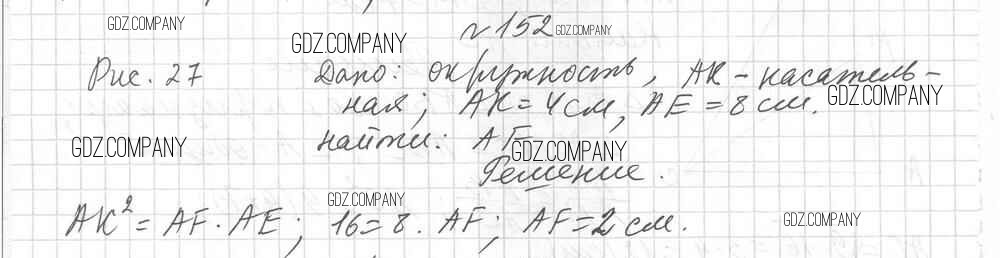 GDZ.COMPANY
№152 GDZ.COMPANY
GDZ.COMPANY
Рис. 27 Дано: окружность, АК - касатель-
ная; АК = 4 см, АЕ = 8 см. GDZ.COMPANY
GDZ.COMPANY найти: AF
GDZ.COMPANY
Решение.
GDZ.COMPANY
АК² = AF · АЕ; 16 = 8 · AF; AF = 2 см. GDZ.COMPANY